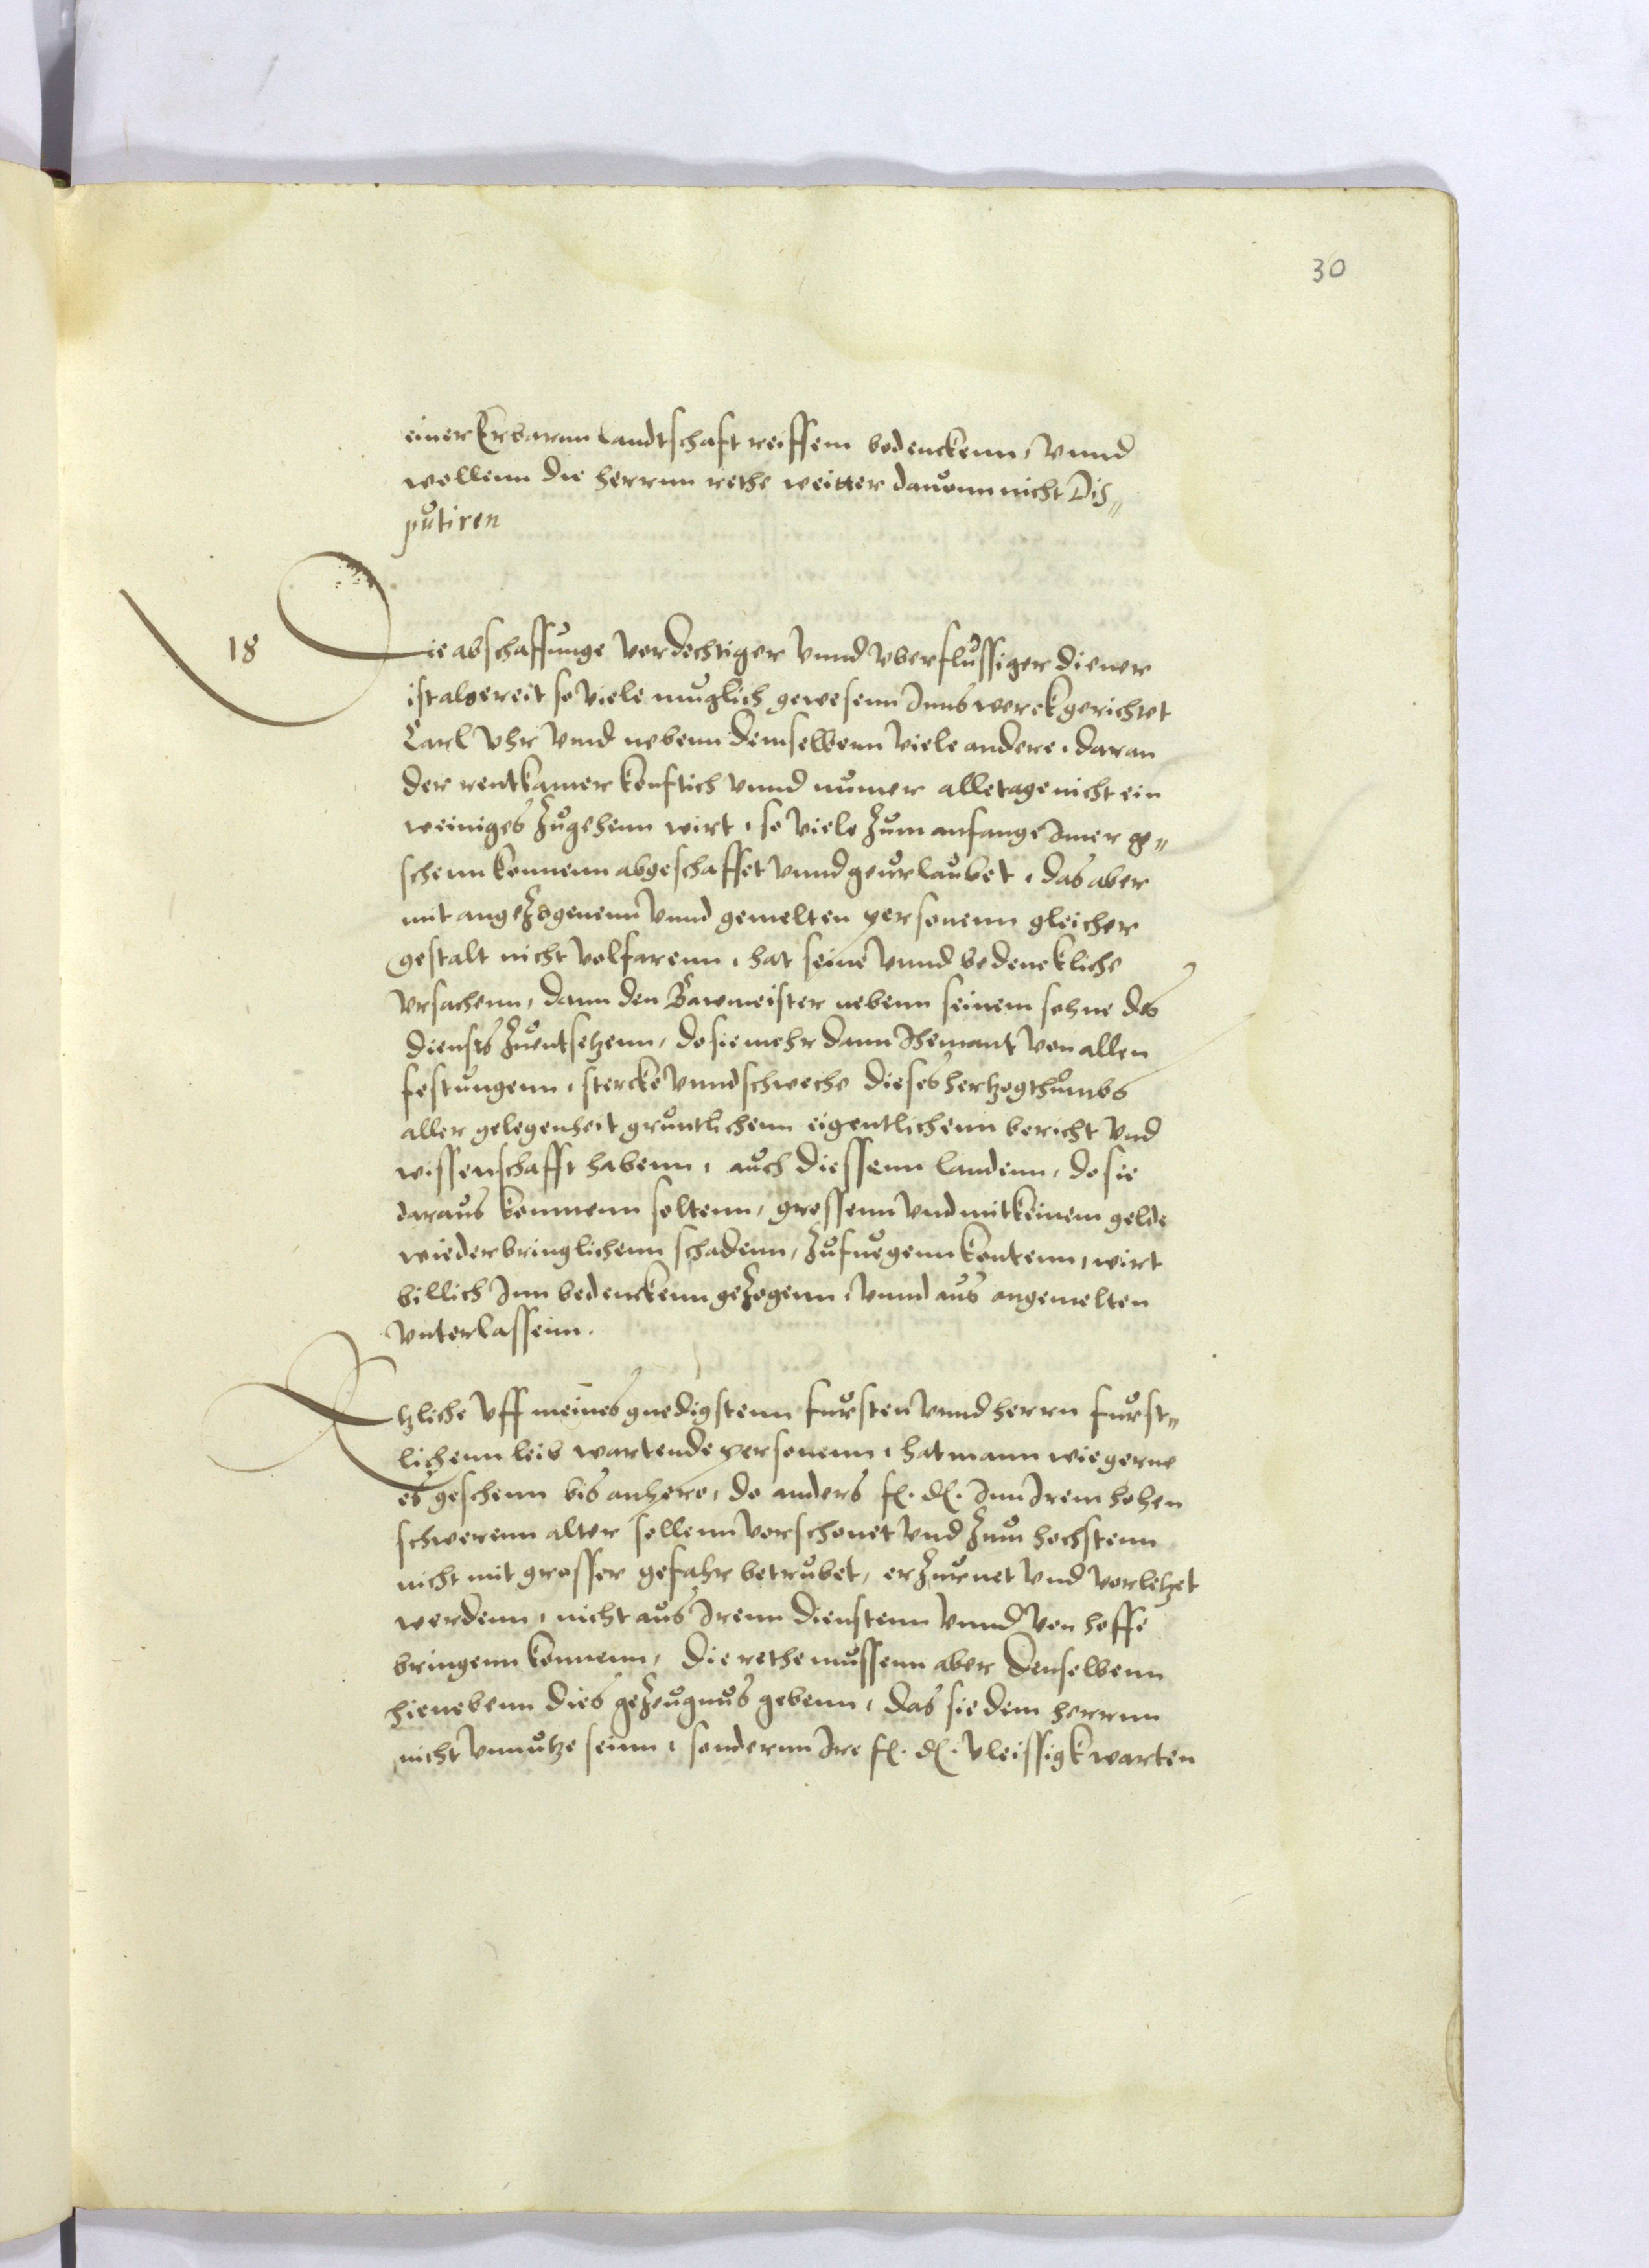 30
einer Erbarnn landtschaft reiffem bedenckenn, vnnd
wollenn die herrnn rethe weitter dauonn nicht Dis„
putiren
18
Die abschaffunge verdechtiger vnnd vberflussiger diener
ist albereit so viele muglich gewesenn Inns werck gerichtet
Carl Vhr vnnd nebenn demselbenn viele andere, daran
der rentkamer konftich vnnd numer alletage nicht ein
weiniges zugehenn wirt, so viele zum anfange Imer ge„
schenn konnenn abgeschaffet vnnd geurlaubet, das aber
mit angezogenenn vnnd gemelten personenn gleicher
gestalt nicht volfarenn, hat seine vnnd bedenckliche
vrsachenn, dann den Bawmeister nebenn seinem sohne des
diensts zuentsetzenn, do sie mehr dann Ihemant von allen
festungenn, stercke vnnd schweche dieses hertzogthumbs
aller gelegenheit gruntlichenn eigentlichenn bericht vnd
wissenschafft habenn, auch diessenn landenn, do sie
daraus kommenn soltenn, grossenn vnd mit keinem gelde
wiederbringlichenn schadenn, zufuegenn kontenn, wirt
billich Inn bedenckenn gezogenn, vnnd aus angemelten
vnterlassenn.
Etzliche vff meines gnedigstenn furstenn vnnd herrn furst„
lichenn leib wartende personenn, hat mann wie gerne
es geschenn bis anhero, do anders fl. dl. Inn Irem hohen
schwerenn alter sollenn verschonet vnd zum hochstenn
nicht mit grosser gefahr betrubet, erzurnet vnd verletzet
werdenn, nicht aus Irenn dienstenn vnnd von hoffe
bringenn konnenn, die rethe mussenn aber denselbenn
hienebenn dies gezeugnus gebenn, das sie dem herrnn
nicht vnnutze seinn, sondernn Ire fl. dl. vleissigk warten